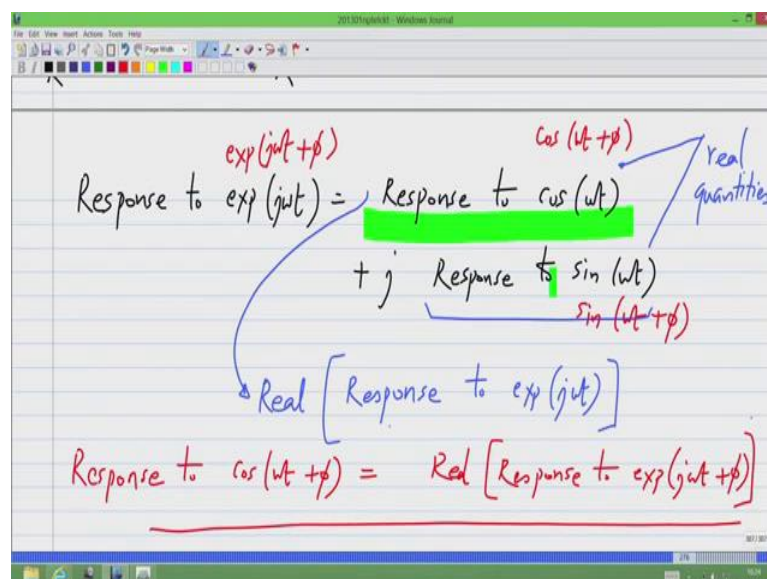 201301nptelckt - Windows Journal
File Edit View Insert Actions Tools Help
Page Width
B I
exp(jωt+ϕ) cos(ωt+ϕ)
real
Response to exp(jωt) = Response to cos(ωt) quantities
+ j Response to sin(ωt)
sin(ωt+ϕ)
Real [Response to exp(jωt)]
Response to cos(ωt+ϕ) = Real [Response to exp(jωt+ϕ)]
276